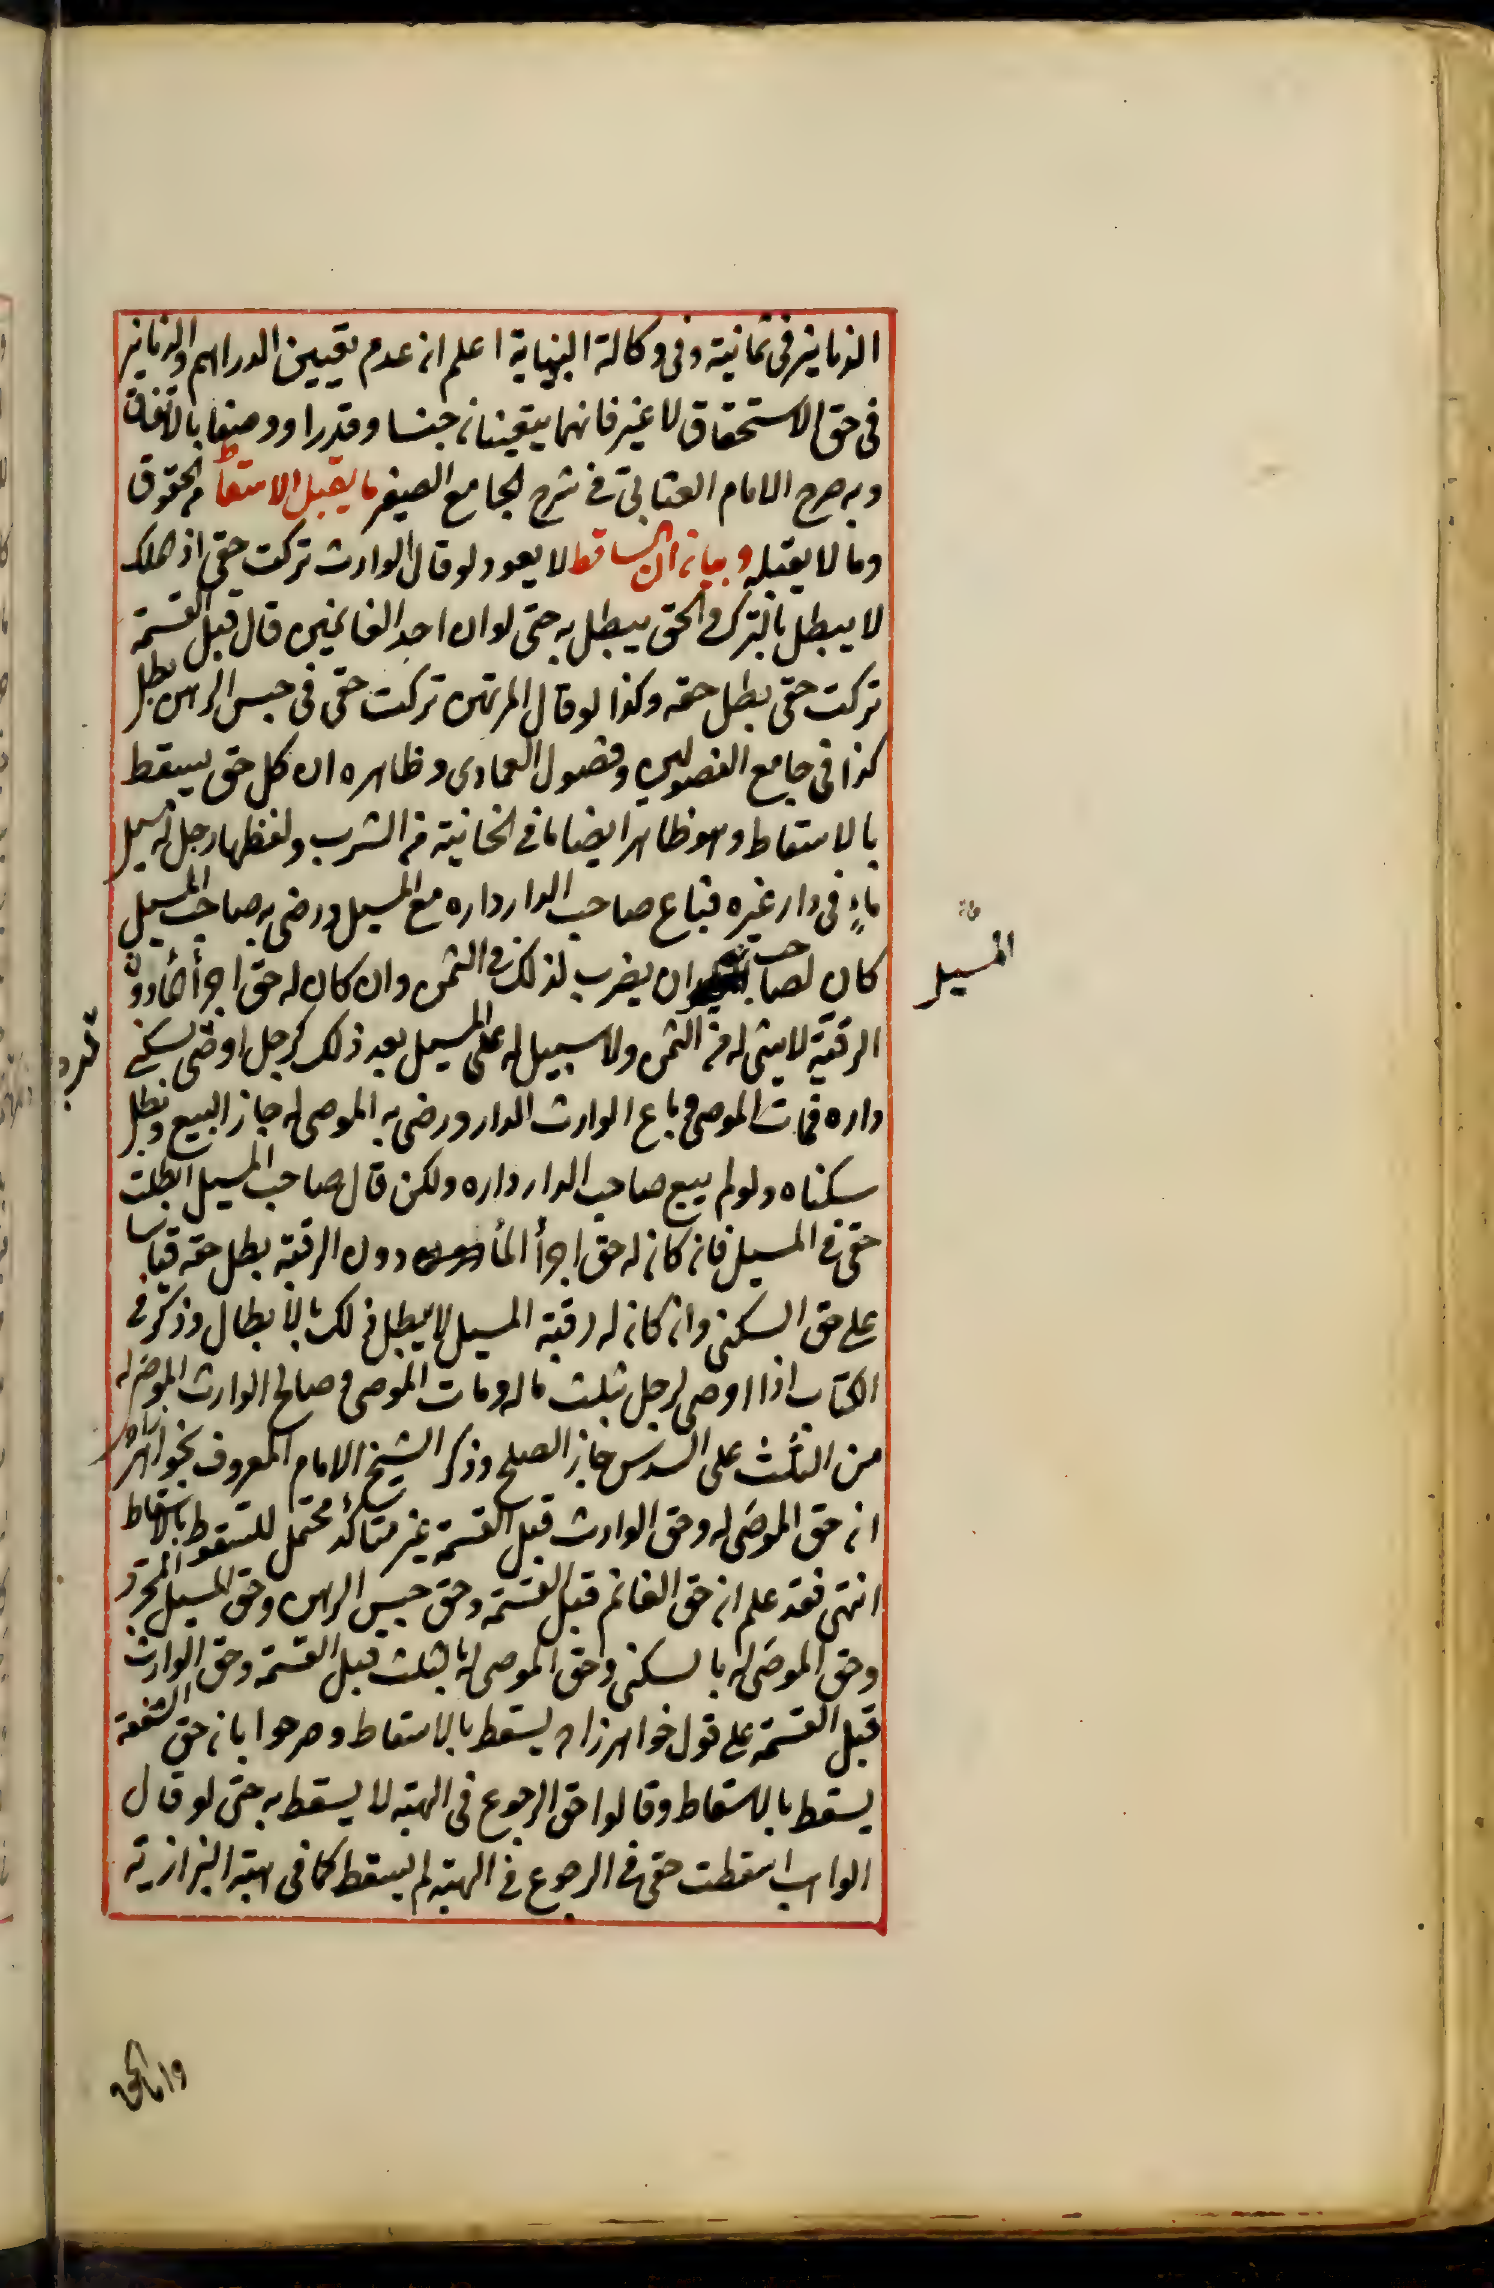 الدنانير فى ثمانية وفى وكالة النهاية اعلم ان عدم تعيين الدراهم والدنانير
فى حق الاستحقاق لا غير فانهما يتعينان جنسا وقدرا ووصفا بالاتفاق
وبه صرح الامام العتابى فى شرح الجامع الصغير ما يقبل الاسقاط من الحقوق
وما لا يقبله وبيان ان الساقط لا يعود لو قال الوارث تركت حقى اذ الملك
لا يبطل بالترك والحق يبطل به حتى لو ان احد الغانمين قال قبل القسمة
تركت حقى بطل حقه وكذا لو قال المرتهن تركت حقى فى حبس الرهن بطل
كذا فى جامع الفصولين وفصول العمادى وظاهره ان كل حق يسقط
بالاسقاط وهو ظاهر ايضا ما فى الخانية من الشرب ولفظها رجل له مسيل
ماء فى دار غيره فباع صاحب الدار داره مع المسيل ورضى به صاحب المسيل
كان لصاحب ان يضرب لذلك فى الثمن وان كان له حق اجرأ الماء دون
المسيل
الرقبة لا شئ له من الثمن ولا سبيل له على المسيل بعد ذلك كرجل اوصى بسكنى
داره فمات الموصى وباع الوارث الدار ورضى به الموصى له جاز البيع وبطل
سكناه ولو لم يبع صاحب الدار داره ولكن قال صاحب المسيل ابطلت
حقى فى المسيل فان كان له حق اجرأ المأ دون الرقبة بطل حقه قياسا
على حق السكنى وان كان له رقبة المسيل لا يبطل ذلك بالابطال وذكر فى
الكتاب اذا اوصى لرجل بثلث ماله ومات الموصى وصالح الوارث الموصى له
من الثلث على السدس جاز الصلح وذكر الشيخ الامام المعروف بخواهر زاده
ان حق الموصى له وحق الوارث قبل القسمة غير متأكد محتمل للسقوط بالاسقاط
انتهى فقد علم ان حق الغانم قبل القسمة وحق حبس الرهن وحق المسيل المجرد
وحق الموصى له بالسكنى وحق الموصى له بالثلث قبل القسمة وحق الوارث
قبل القسمة على قول خواهر زاده يسقط بالاسقاط وصرحوا بان حق الشفعة
يسقط بالاسقاط وقالوا حق الرجوع فى الهبة لا يسقط به حتى لو قال
الواهب اسقطت حقى فى الرجوع فى الهبة لم يسقط كما فى هبة البزازية
واما الحق